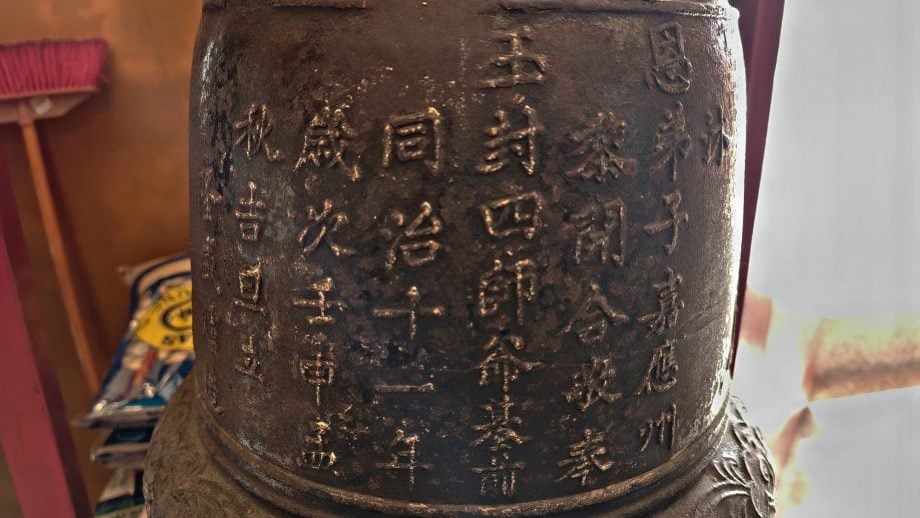 沐
恩弟子嘉應州
黎開合敬奉
王封四師爺基前
同治十一年
歲次壬申孟
秋吉旦立